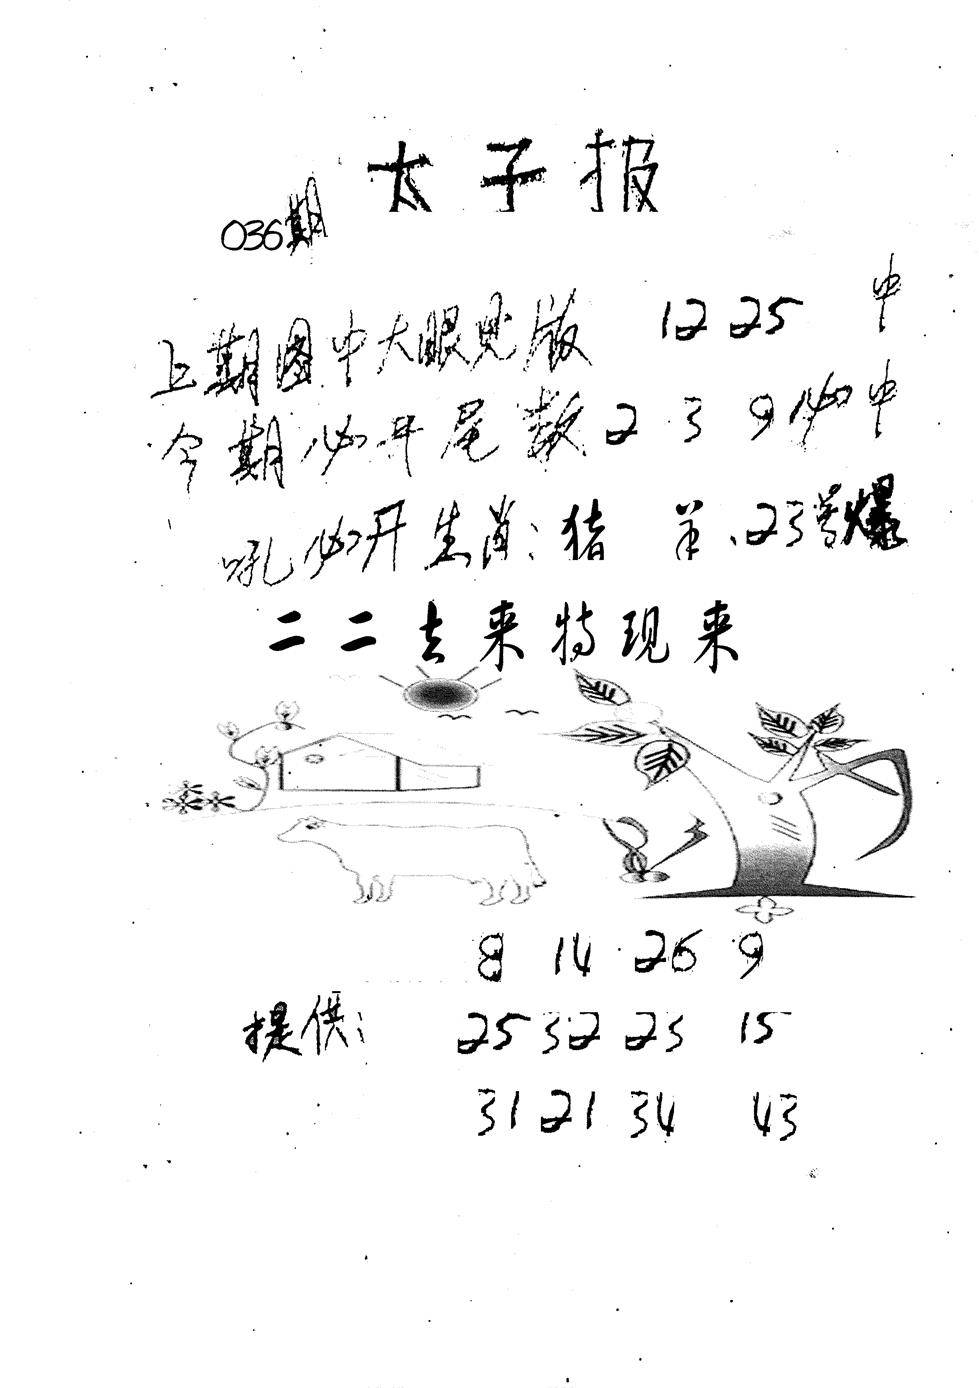 太子报
036期
上期图中大眼见版 12 25 中
今期必开尾数 2 3 9必中
吼必开生肖:猪 羊、23号爆
二二去来特现来
8 14 26 9
提供: 25 32 23 15
31 21 34 43